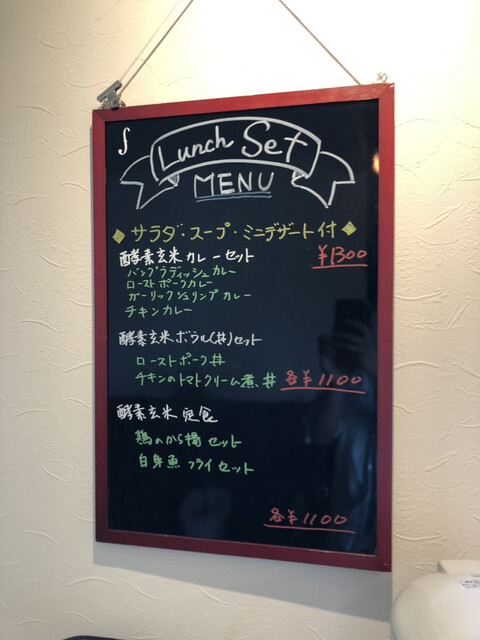 Lunch Set
MENU
サラダ・スープ・ミニデザート付
酵素玄米カレーセット ¥1300
バングラディッシュカレー
ローストポークカレー
ガーリックシュリンプカレー
チキンカレー
酵素玄米ボウル(丼)セット
ローストポーク丼
チキンのトマトクリーム煮、丼 各¥1100
酵素玄米定食
鶏のから揚セット
白身魚フライセット
各¥1100